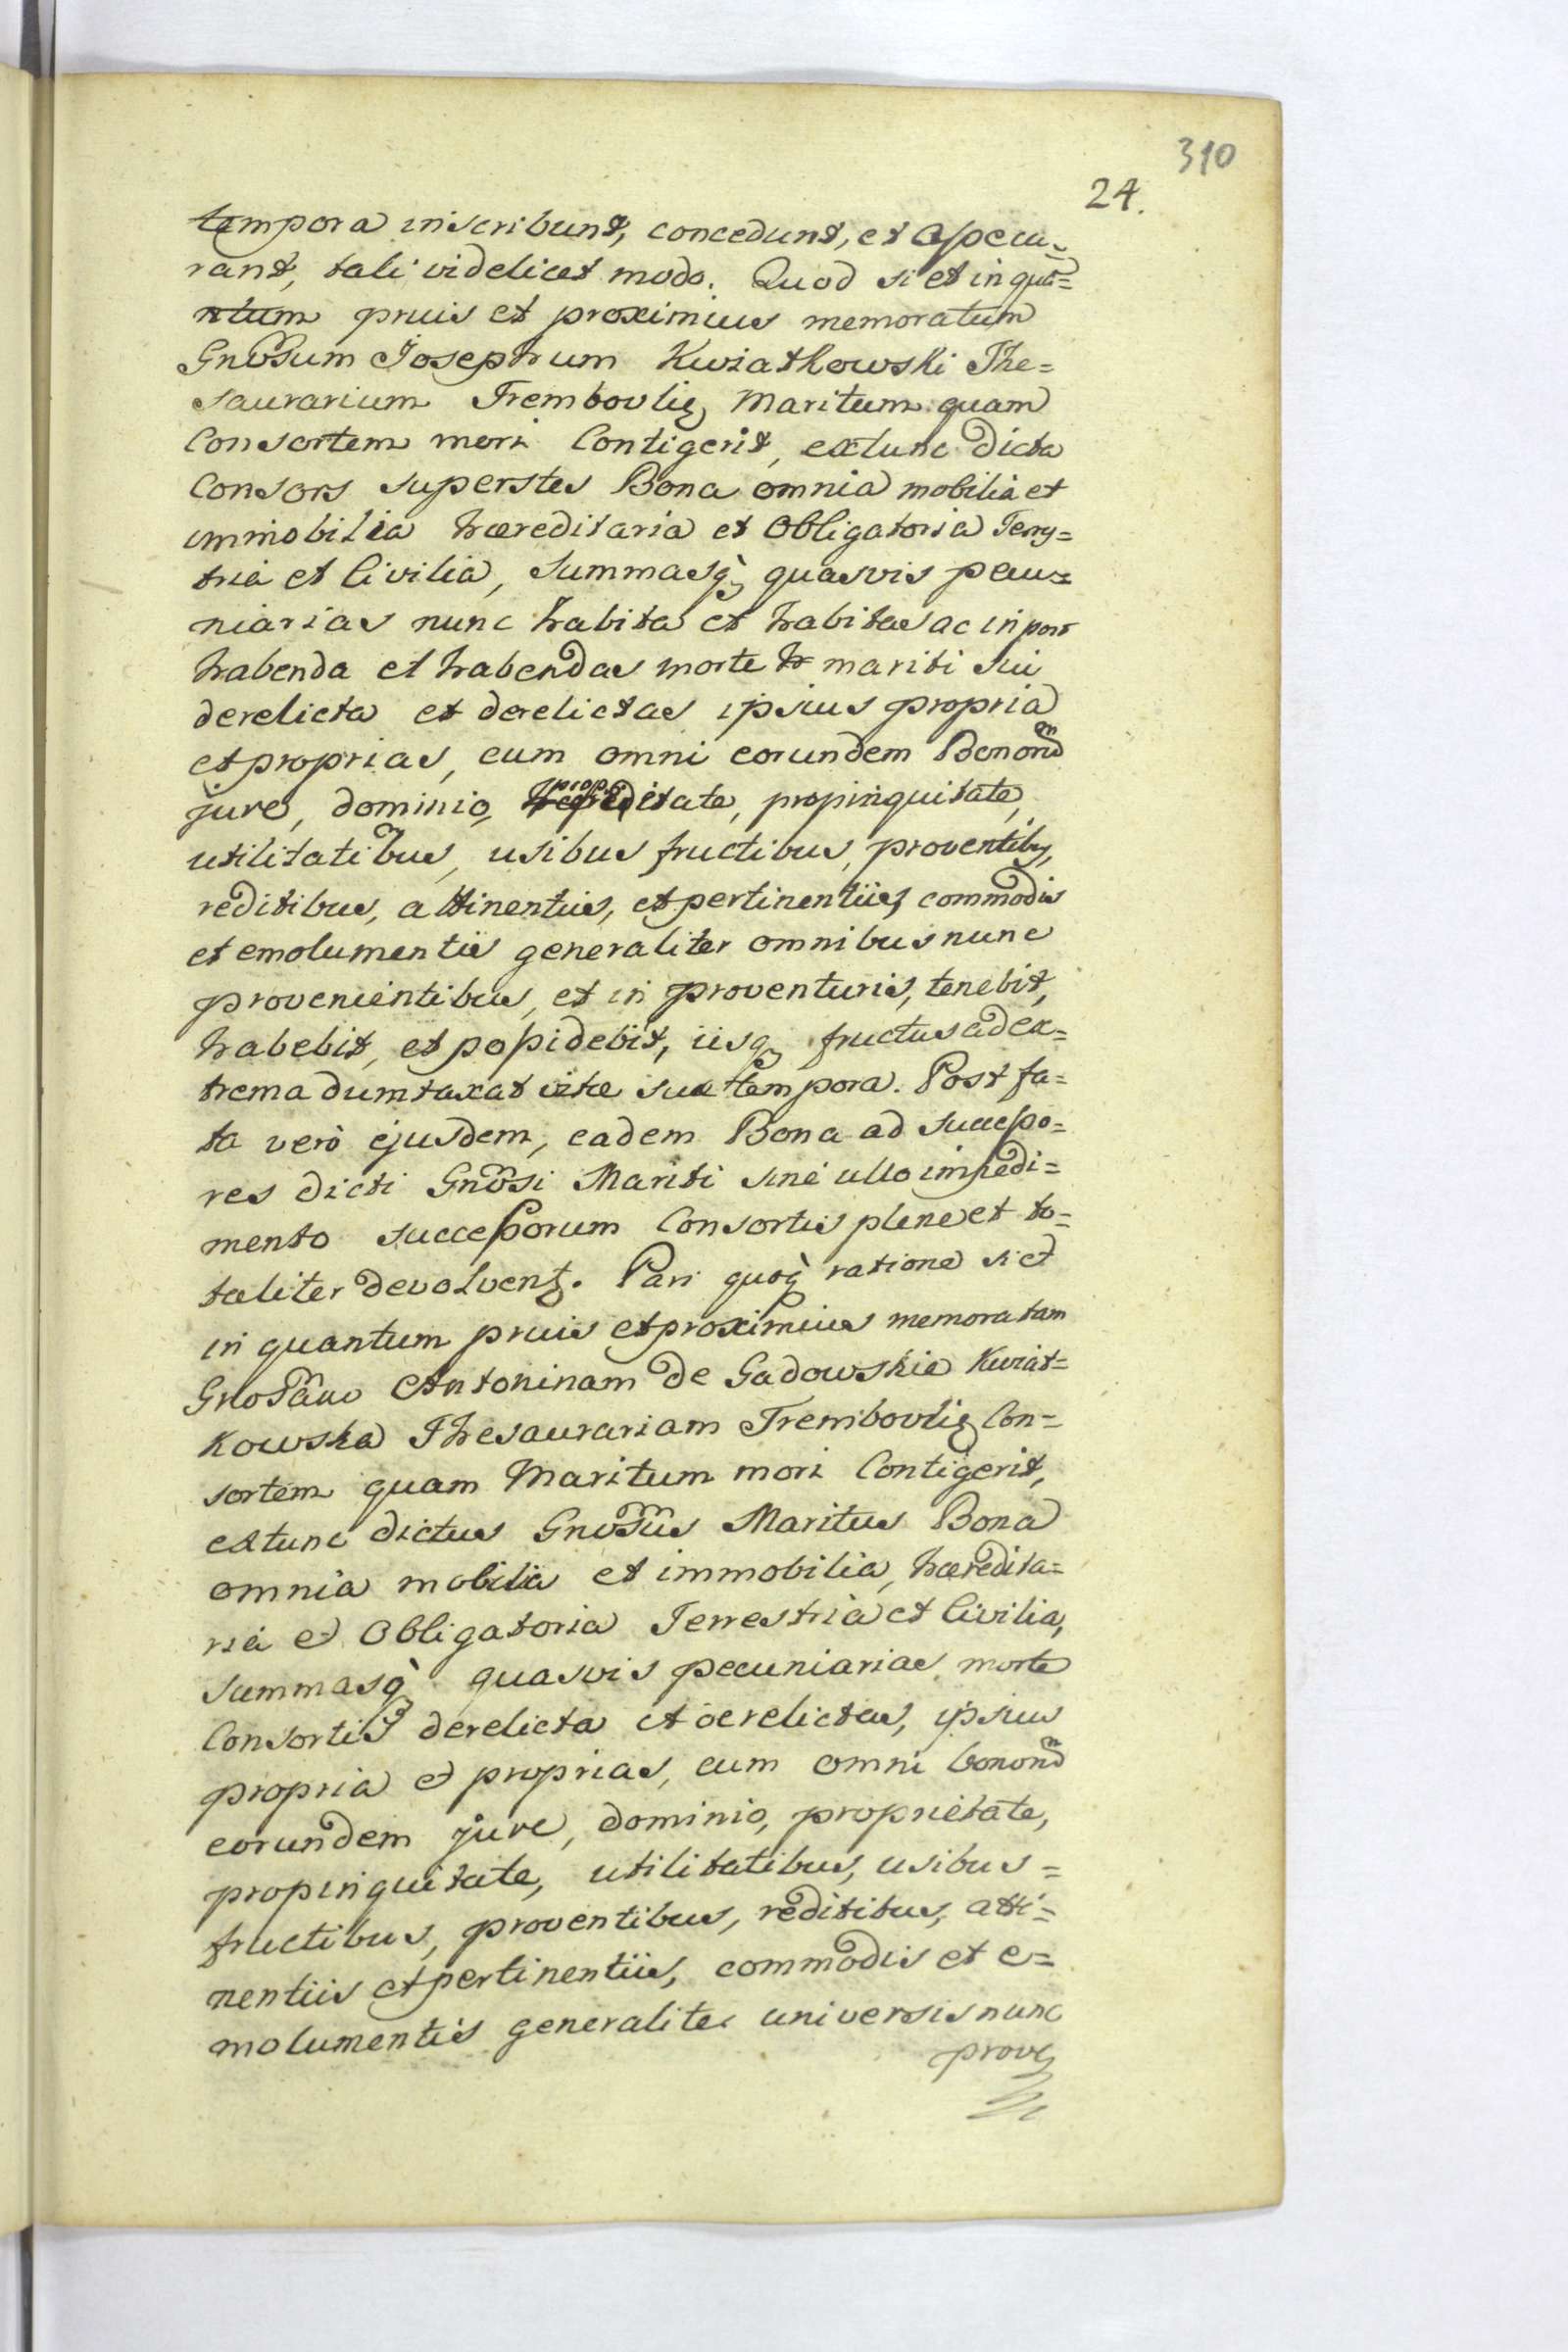 310
24.
tempora inscribunt, concedunt, et assecu-
rant, tali videlicet modo. Quod si et in qua=
ntum prius et proximius memoratum
Gnosum Josephum Kwiatkowski The=
saurarium Trembovlię, Maritum quam
Consortem mori Contigerit, extunc dicta
Consors superstes Bona omnia mobilia et
immobilia hæreditaria et Obligatoria Terrę=
tria et Civilia, Summasq̀ quasvis pecu=
niarias nunc habita et habitas ac in post
habenda et habendas morte mariti sui
derelicta et derelictas ipsius propria
et proprias, cum omni eorundem Bonorum
jure, dominio, proprietate, propinquitate,
utilitatibus, usibus fructibus, proventibus,
reditibus, attinentiis, et pertinentiis, commodis
et emolumentis generaliter omnibus nunc
provenientibus, et in proventuris, tenebit,
habebit, et possidebit, iisq fructus ad ex=
trema dumtaxat vitæ suæ tempora. Post fa=
ta verò ejusdem, eadem Bona ad Successo=
res dicti Gnosi Mariti sine ullo impedi=
mento successorum Consortis plene et to=
taliter devolvent. Pari quoq̀ ratione si et
in quantum prius et proximius memoratam
Gnosam Antoninam de Gadowskie Kwiat=
kowska Thesaurariam Trembovlię Con=
sortem quam Maritum mori Contigerit,
extunc dictus Gnosus Maritus Bona
omnia mobilia et immobilia, hæredita=
ria et Obligatoria Terrestria et Civilia,
summasq̀ quasvis pecuniarias morte
Consortis derelicta et derelictas, ipsius
propria et proprias, cum omni bonorum
eorundem jure, dominio, proprietate,
propinquitate, utilitatibus, usibus=
fructibus, proventibus, reditibus, atti=
nentiis et pertinentiis, commodis et e=
molumentis generaliter universis nunc
prove